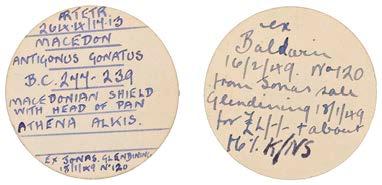 MACEDON
ANTIGONUS GONATUS
B.C. 277-239
MACEDONIAN SHIELD
WITH HEAD OF PAN
ATHENA ALKIS.
EX JONAS, GLENDINING
18/1/49 No 120
ex
Baldwin
16/2/49. No 120
from Jonas sale
Glendining 18/1/49
for £4/-/- + about
K/NS